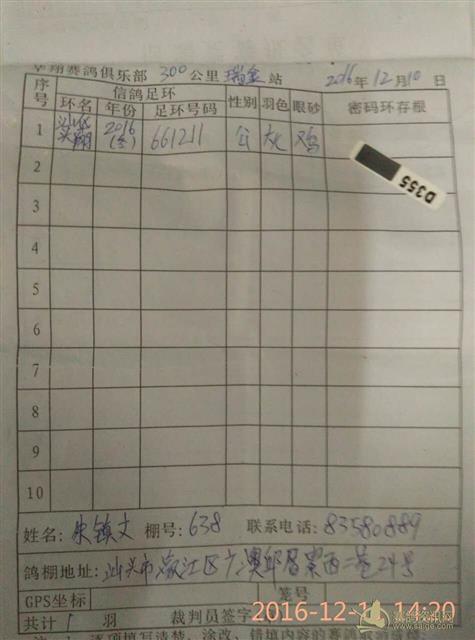 翔赛鸽俱乐部 300 公里 瑞金 站 2016年12月10日
序号 信鸽足环 性别 羽色 眼砂 密码环存根
环名 年份 足环号码
1 2016 661211 公 灰 鸡
D355
2
3
4
5
6
7
8
9
10
姓名: 朱镇文 棚号: 638 联系电话: 83580889
鸽棚地址: 汕头市濠江区广澳邱厝 西二巷24号
GPS坐标 签号
共计 1 羽 裁判员签字
2016-12-11 14:20
逐项填写清楚、涂改、错填内容